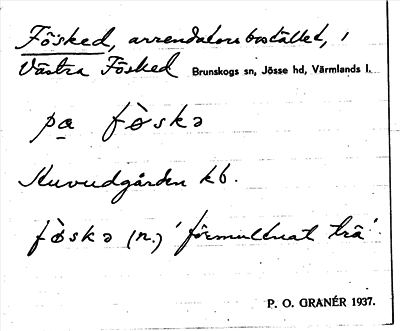 Fösked, arrendatorsbostället, i
Västra Fösked Brunskogs sn, Jösse hd, Värmlands l.
pa fö̀skə
Huvudgården kb.
fö̀skə (n.) 'förmultnat trä'.
P. O. GRANÉR 1937.